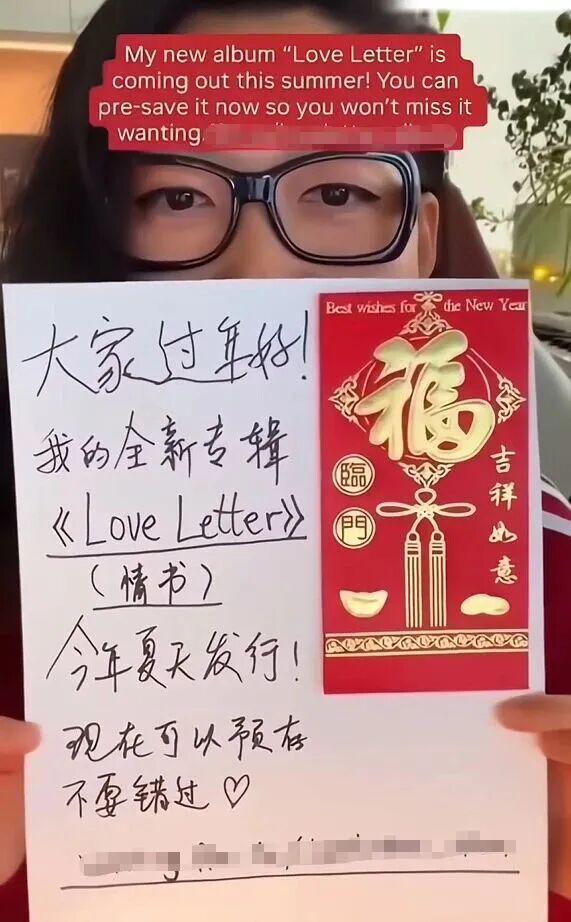 My new album “Love Letter” is
coming out this summer! You can
pre-save it now so you won’t miss it
wanting.
大家过年好!
我的全新专辑
《Love Letter》
(情书)
今年夏天发行!
现在可以预存
不要错过♡
Best wishes for the New Year
福
臨門
吉祥如意